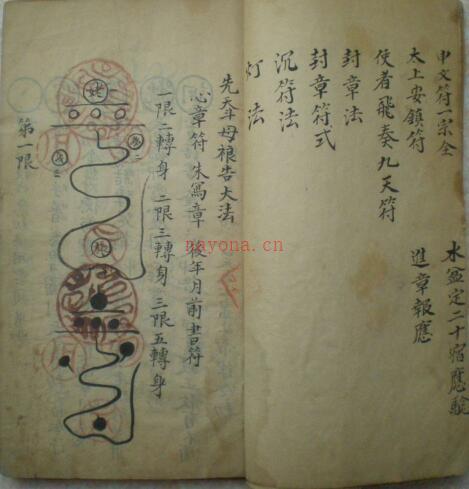 申文符一宗全
太上安鎮符
使者飛奏九天符
封章法
封章符式
沉符法
灯法
水盆定二十宿應驗
進章報應
先天斗母禳告大法
心章符 朱寫章 後年月前書符
一限二轉身 二限三轉身 三限五轉身
第一限
nayona.cn